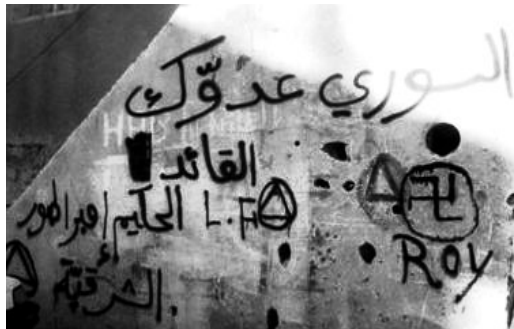 السوري عدوّك
القائد
الحكيم امبراطور L.F
الشرقيّة.
ROY